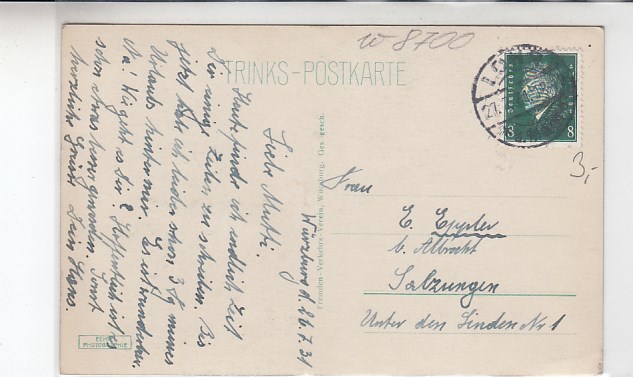 w-8700
TRINKS-POSTKARTE
Deutsches Reich
8 8
3,-
Würzburg, d. 26.7.31
Liebe Mutti!
Heute finde ich endlich Zeit
Dir einige Zeilen zu schreiben. Bis
jetzt habe ich leider schon 3 Tg meines
Urlaubs hinter mir. Es ist wunderbar.
Na! Wie geht es Dir? Hoffentlich ist es
schon etwas besser geworden. Sonst
herzliche Grüße Dein Hans.
Fremden-Verkehrs-Verein, Würzburg. Ges. gesch.
Frau
E. Eppler
b. Albrecht
Salzungen
Unter den Linden Nr 1
ECHTE
PHOTOGRAPHIE